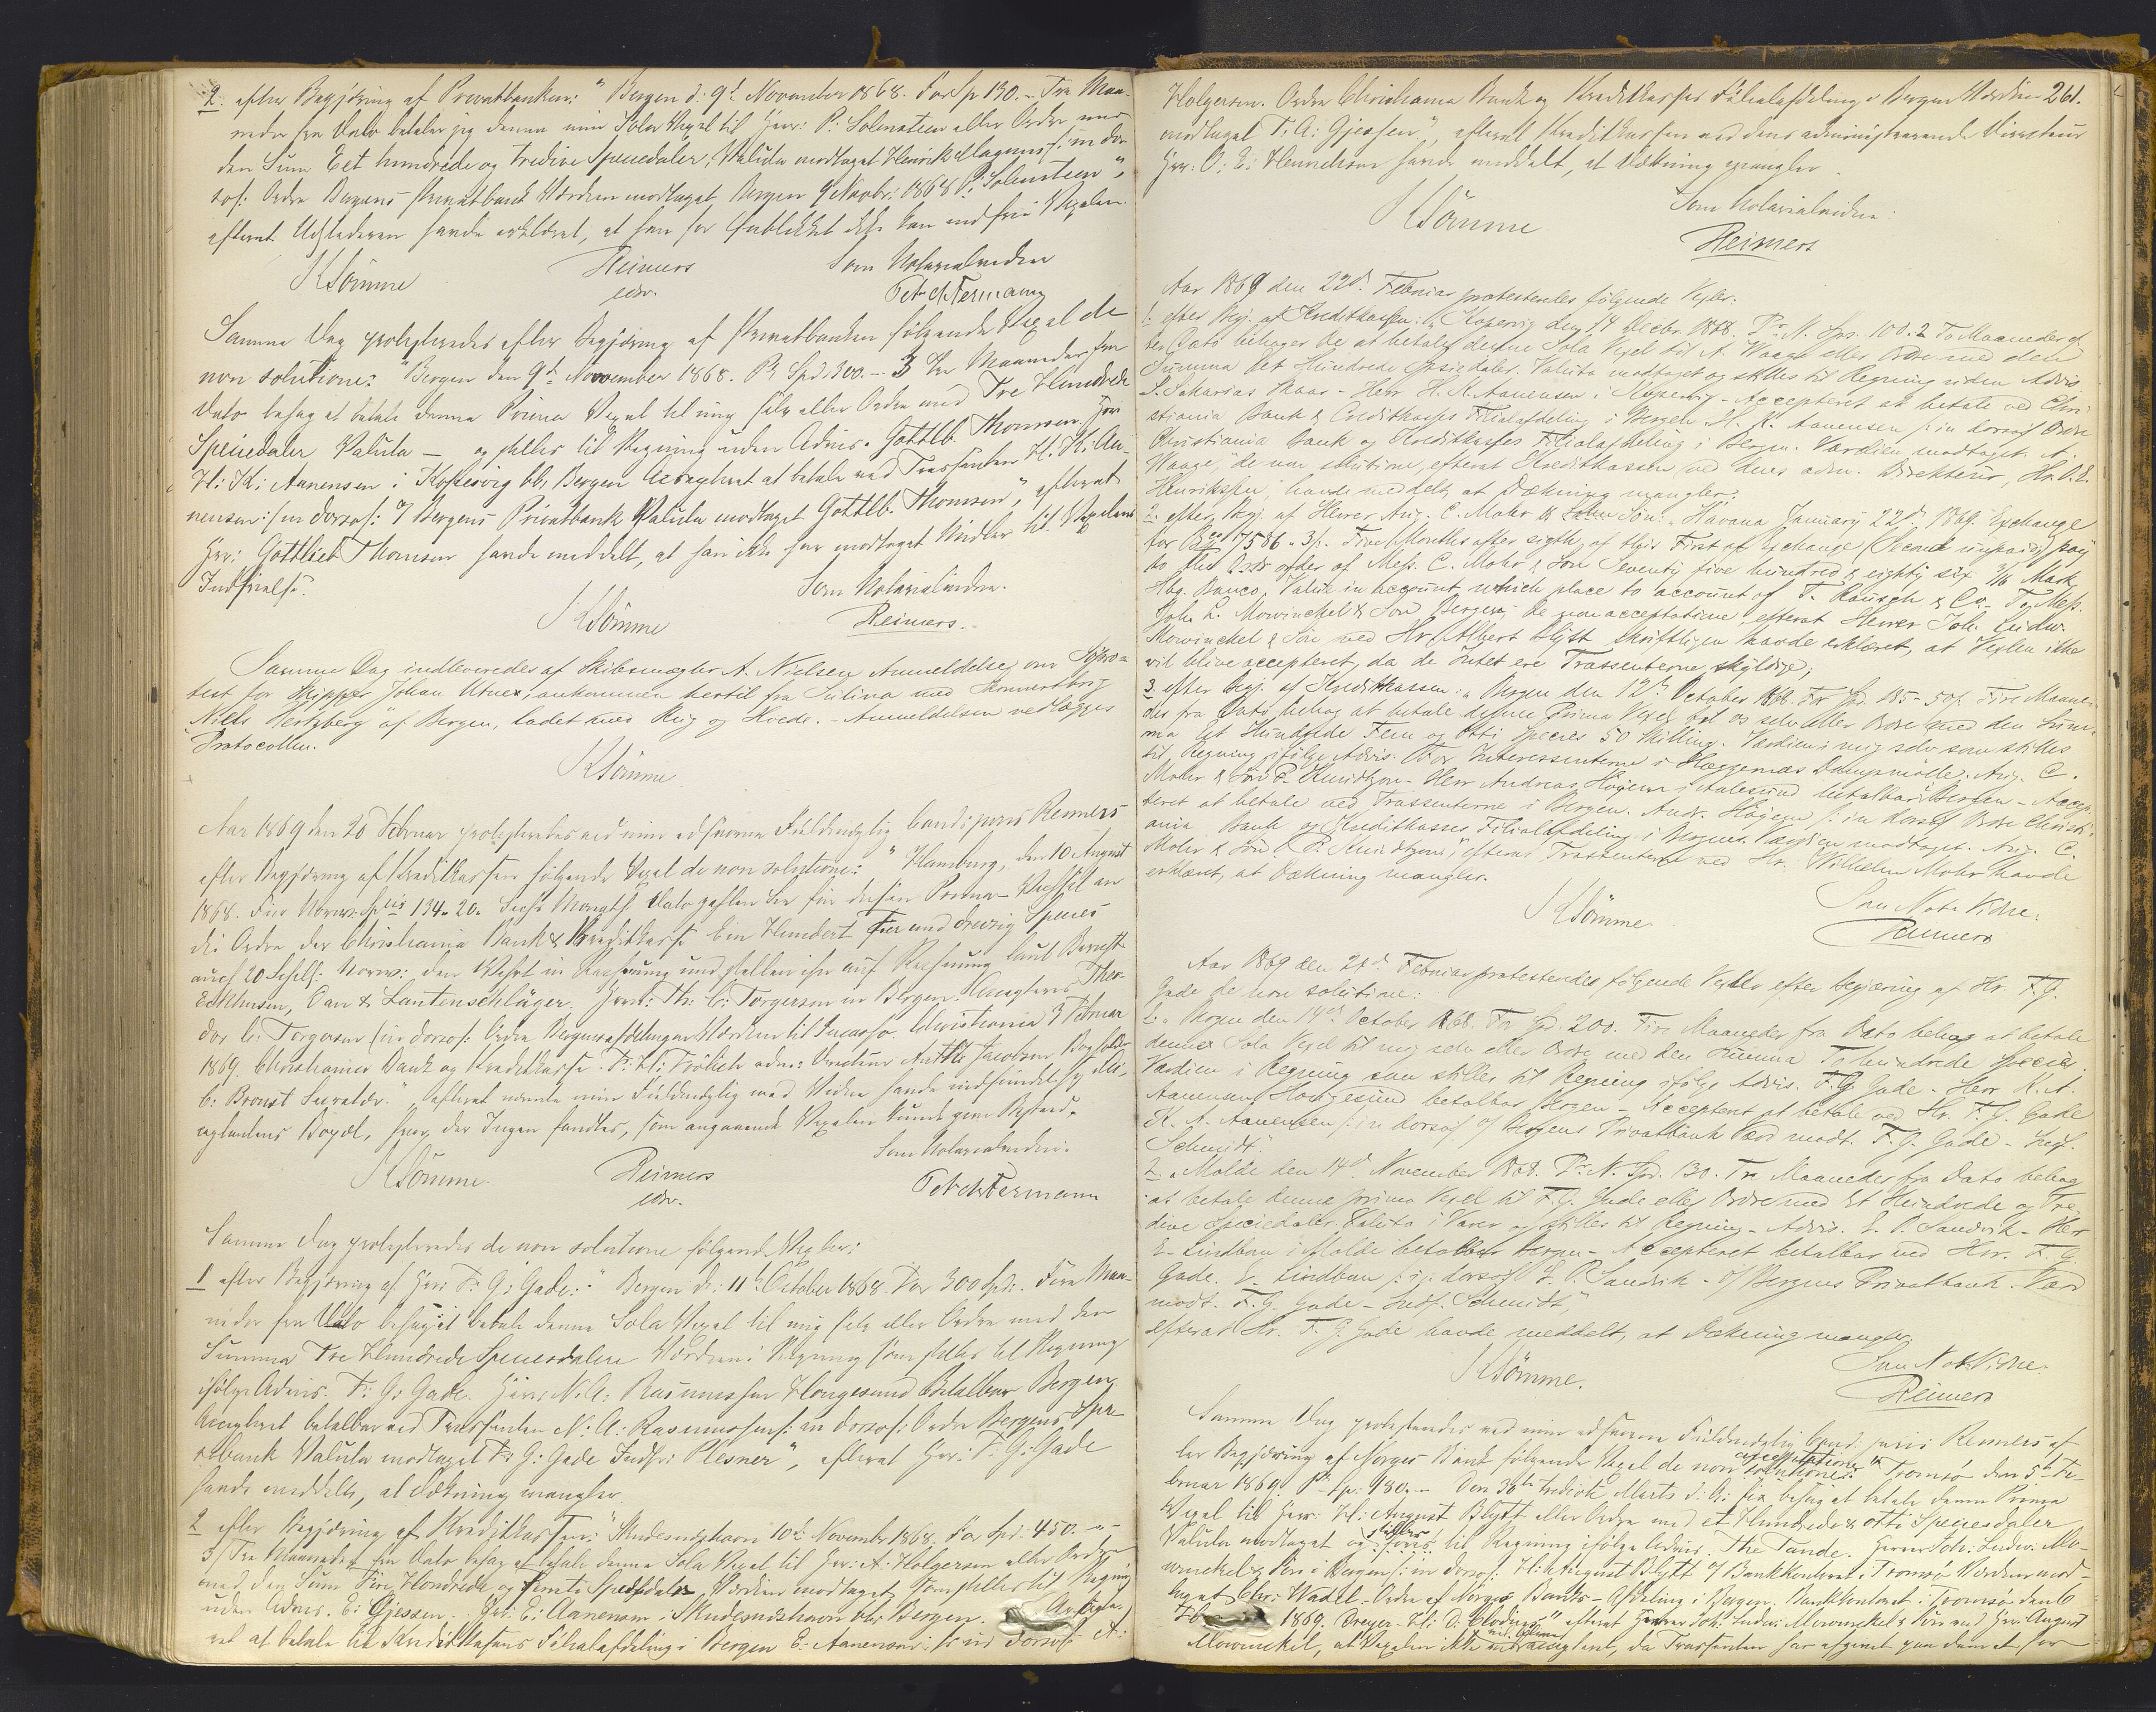 2 efter Begjæring af Privatbanken: "Bergen d: 9d November 1868. For Sp 130.- Tre Maa-
neder fra Dato betaler jeg denne min Sola Vexel til Herr: P: Solensteen eller Ordre med
den Sum Eet hundrede og tredive Speciedaler, Valuta modtaget Henrik Magnus /: in dor
so /: Ordre Bergens Privatbank Værdien modtaget Bergen 9 Novbr: 1868 P: Solensteen",
efterat Udstederen havde erklæret, at han for Øieblikket ikke kan indfrie Vexelen.
KSömme Reimers Som Notarialvidne
edsv. Pet. Hermann
Samme Dag protesteredes efter Begjæring af Privatbanken følgende Vexel de
non solutione: "Bergen den 9d November 1868. Pr Spd. 300.- 3 Tre Maaneder fra
Dato behag at betale denne Prima Vexel til mig selv eller Ordre med Tre Hundrede
Speciedaler Valuta — og stilles til Regning uden Advis. Gottlb. Thomsen. Herr
H: K: Aanensen i Kopervig blt. Bergen Accepteret at betale ved Trassenten H. K. Aa-
nensen :/ in dorso /: O/ Bergens Privatbank Valuta modtaget Gottlb. Thomsen", efterat
Hrr: Gottlieb Thomsen havde meddelt, at han ikke har modtaget Midler til Vexelens
Indfrielse.
KSömme Som Notarialvidne.
Reimers.
Samme Dag indleveredes af Skibsmægler A. Nielsen Anmeldelse om Søpro-
test for Skipper Johan Utnes, ankommen hertil fra Sulina med
Niels Hertzberg" af Bergen, ladet med Rug og Hvede. - Anmeldelsen vedlægges
Protocollen.
KSömme
Aar 1869 den 20 Februar protesteredes ved min edsvorne Fuldmægtig Cand: juris Reimers
efter Begjæring af Kreditkassen følgende Vexel de non solutione: "Hamburg, den 10 August
1868. Für Norw. Spcis 134. 20. Sechs Monath Dato zahlen Sie für diesen Prima-Wechsel an
die Ordre der Christiania Bank & Kreditkasse Ein Hundert Vier und dreizig Species
auch 20 Schill: Norw: den Werth in Rechnung und stellen ihn auf Rechnung laut Bericht
Lautenschläger. Herrn: Th: C: Torgersen in Bergen. Accepteres Theo-
dor C: Torgersen (in dorso /: Ordre Bergens afdelingen Værdien til Incasso. Christiania 3 Februar
1869. Christiania Bank og Kreditkasse. F: H: Frölich adm: Directeur Anttle Jacobsen Bogholder
C: efterat nævnte min Fuldmægtig med Vidne havde indfundet sig
ceptantens Bopæl, hvor der Ingen fandtes, som angaaende Vexelen kunde give Besked.
KSömme. Reimers Som Notarialvidne.
edsv. Pet. Hermann
Samme Dag protesteredes de non solutione følgende Vexler:
1 efter Begjæring af Herr F: G: Gade: "Bergen d: 11te October 1868. For 300 Spd. Fire Maa-
neder fra Dato behag at betale denne Sola Vexel til mig selv eller Ordre med den
Summa Tre Hundrede Speciesdaler Værdien i Regning som stilles til Regning
ifølge Advis. F: G: Gade. Herr N: A: Rasmussen Haugesund Betalbar Bergen
Accepteret betalbar ved Trassenten N: A: Rasmussen /: in dorso /: Ordre Bergens Spa-
rebank Valuta modtaget F: G: Gade Indf: Plesner", efterat Herr: F: G: Gade
havde meddelt, at Dækning mangler.
2 efter Begjæring af Kreditkassen: "Skudesneshavn 10d: November 1868. For Spd: 450.-
3/ Tre Maaneder fra Dato behag at betale denne Sola Vexel til Herr: A: Holgersen eller Ordre
med den Sum Fire Hundrede og Femti Speciedaler, Værdien modtaget som stilles til Regning
uden Advis. E: Gjessen. Hrr: E: Aanensen i Skudesneshavn blt: Bergen. Accepte-
ret at betale til Kreditkassens Filialafdeling i Bergen E: Aanensen /: in dorso /: A:
261.
Holgersen. Ordre Christiania Bank og Kreditkasses Filialafdeling i Bergen Værdien
modtaget T. A: Gjessen", efterat Kreditkassen ved dens administrerende Directeur
Hrr: O: E: Henrichsen havde meddelt, at Dækning mangler.
KSömme Som Notarialvidne:
Reimers
Aar 1869 den 22d. Februar protesteredes følgende Vexler:
1. efter Begj. af Kreditkassen: "Kopervig den 14 Decbr. 1868. Pr. N. Sps. 100. 2 To Maaneder ef-
ter Dato behager De at betale denne Sola Vexel til A. Waage eller Ordre med den
Summa Et Hundrede Speciedaler. Valuta modtaget og stilles til Regning uden Advis
S. Sakarias Skaar - Herr H. K. Aanensen i Kopervig - Accepteret at betale ved Chri-
stiania Bank & Creditkasses Filialafdeling i Bergen H. K. Aanensen /: in dorso /: Ordre
Christiania Bank og Kreditkasses Filialafdeling i Bergen. Værdien modtaget. A.
Waage," de non solutione, efterat Kreditkassen ved dens adm. Direktør, Hr. O. E.
Henrikssen, havde meddelt, at Dækning mangler;
2. efter Begj. af Herrer Aug. C. Mohr & Søn: "Havana January 22d. 1869. Exchange
for Bco 7586. 3/-. Five Months after sigth of this First of Exchange (Second unpaid) pay
to the order of Mess. C. Mohr & Son Seventy five hundred & eighty six 3/16 Mark
Hbg. Banco, Value in account which place to account of F. Rausch & Co - To Mess.
Joh. L. Mowinckel & Son Bergen," de non acceptatione, efterat Herrer Joh. Ludw.
Mowinckel & Søn ved Hr. Albert Blytt skriftligen havde erklæret, at Vexlen ikke
vil blive accepteret, da de Intet ere Trassenterne skyldige;
3. efter Begj. af Kreditkassen: "Bergen den 12te October 1868. For Spd. 185 - 50 s. Fire Maane-
der fra Dato behag at betale denne Prima Vexel til os selv eller Ordre med den Sum-
ma Et Hundrede Fem og Otti Species 50 Skilling. Værdien i mig selv som stilles
til Regning ifølge Advis. For Interessenterne i Hæggernæs Dampmølle. Aug. C.
Mohr & Søn P. Knudtzon - Herr Andreas Høgeren i Aalesund betalbar i Bergen - Accep-
teret at betale ved Trassenterne i Bergen. Andr. Høgeren /: in dorso /: Ordre Christi-
ania Bank og Kreditkasses Filialafdeling i Bergen. Værdien modtaget. Aug. C.
Mohr & Søn. P. Knudtzon," efterat Trassenterne ved Hr. Wilhelm Mohr havde
erklæret, at Dækning mangler.
KSömme. Som Nota Vidne:
Reimers
Aar 1869 den 24d. Februar protesteredes følgende Vexler efter Begjæring af Hr. F. G.
Gade de non solutione:
1. "Bergen den 19de October 1868. For Spd. 200. Fire Maaneder fra Dato behag at betale
denne Sola Vexel til mig selv eller Ordre med den Summa Tohundrede Species
Værdien i Regning som stilles til Regning ifølge Advis. F. G. Gade. Herr K. A.
Aanensen Haugesund betalbar Bergen - Accepteret at betale ved Hr. F. G. Gade
K. A. Aanensen /: in dorso /: O/ Bergens Privatbank Værd modt. F. G. Gade - Indf.
Schmidt."
2. "Molde den 14d. November 1868. Pr. N. Spd. 130. Tre Maaneder fra Dato behag
at betale denne prima Vexel til F. G. Gade eller Ordre med Et Hundrede og Tre-
dive Speciedaler. Valuta i Varer og stilles til Regning - Advis. E. P. Sandvik - Herr
E. Lindbau i Molde betalbar Bergen - Accepteret betalbar ved Hrr. F. G.
Gade. E. Lindbau /: in dorso /: E. P. Sandvik - O/ Bergens Privatbank. Værd
modt. F. G. Gade - Indf. Schmidt,"
efterat Hr. F. G. Gade havde meddelt, at Dækning mangler.
KSömme. Som Not. Vidne.
Reimers
Samme Dag protesteredes ved min edsvorne Fuldmægtig Cand. juris Reimers ef-
ter Begjæring af Norges Bank følgende Vexel de non acceptatione: "Tromsø den 5te Fe-
bruar 1869. Pr Sp. 180.- Den 30te Marts d: A: fix behag at betale denne Prima
Vexel til Herr: H: August Blytt eller Ordre med et Hundrede & otti Speciesdaler
Valuta modtaget og stilles til Regning ifølge Advis. The Tande. Herrer Joh: Ludw: Mo-
winckel & Søn i Bergen /: in dorso /: H: August Blytt O/ Bankkontoret i Tromsø Værdien mod-
taget Chr: Wadel - Ordre af Norges Banks - Afdeling i Bergen. Bankkontoret i Tromsø den 6
1869. Dreyer. H: D: Klodius" efterat Herrer Joh: Ludw: Mowinckel & Søn ved Hrr: August
Mowinckel, at Vexelen ikke vil blive accepteret, da Trassenten har